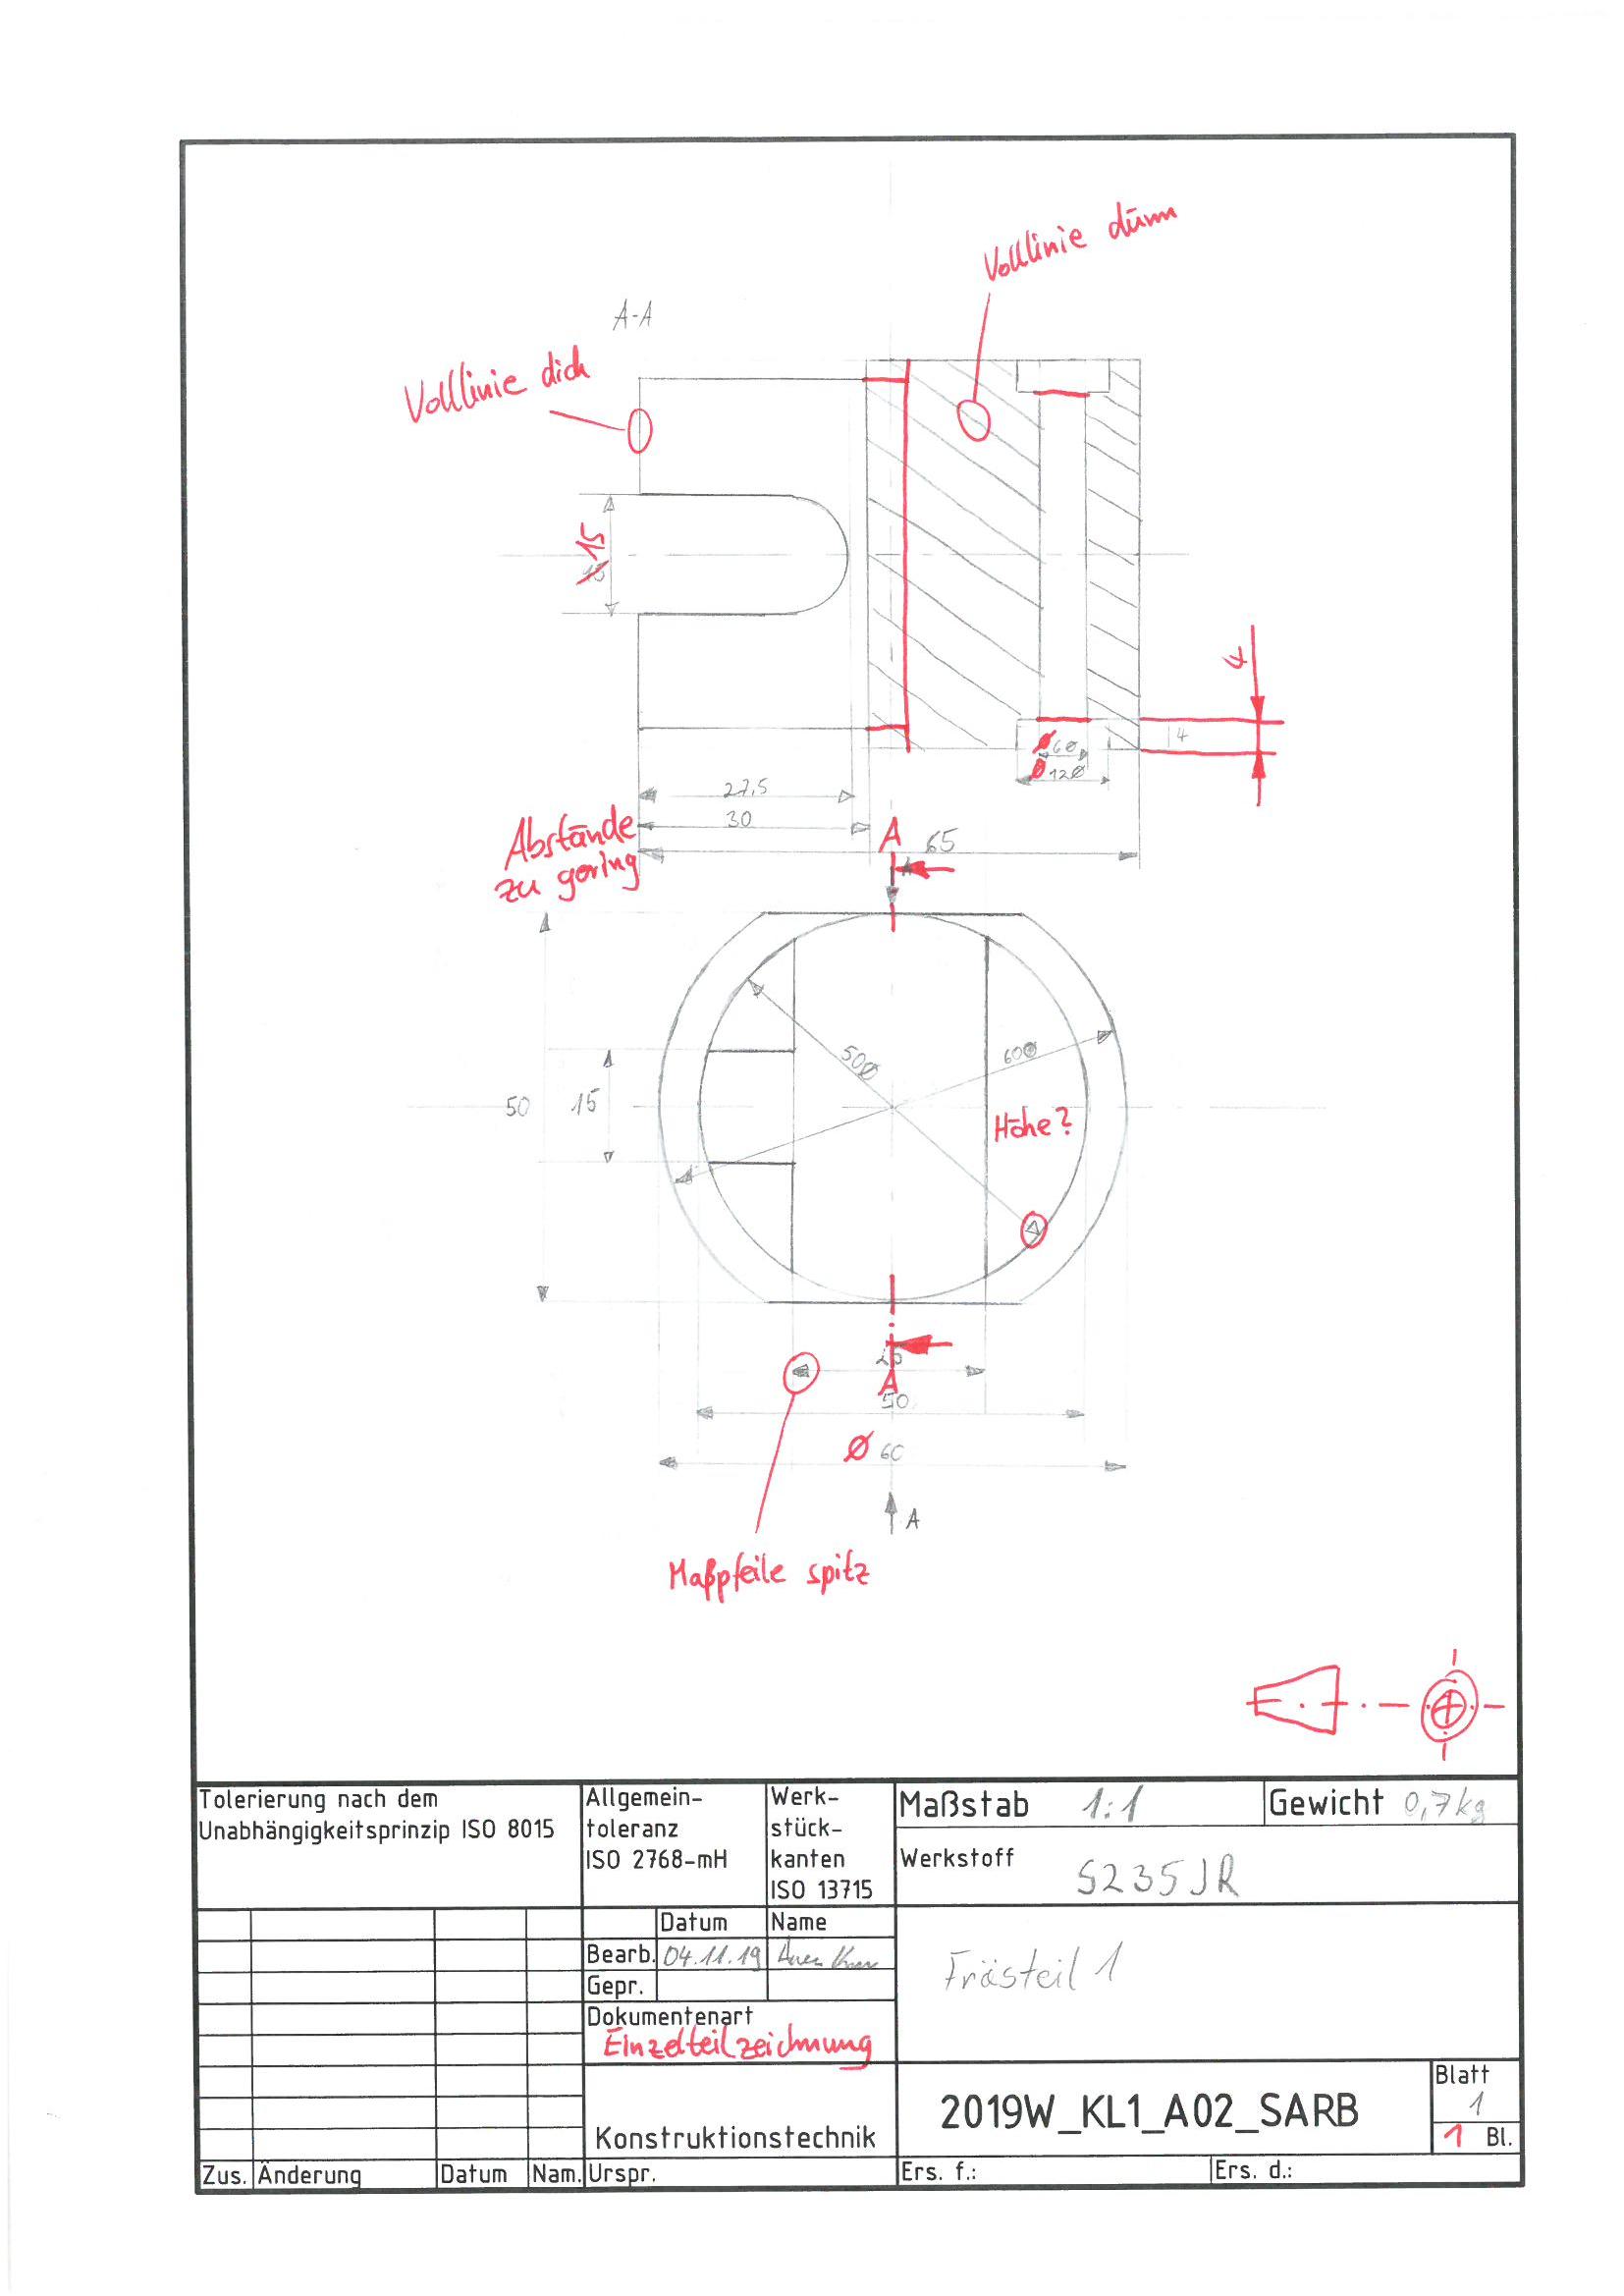 Vollinie dünn
A-A
Vollinie dick
15
4
4
Ø6Ø
Ø12Ø
27,5
30
65
Abstände
zu gering
A
A
50Ø
60Ø
50
15
Höhe?
A
50
Ø 60
A
Maßpfeile spitz
Tolerierung nach dem
Unabhängigkeitsprinzip ISO 8015
Allgemein-
toleranz
ISO 2768-mH
Werk-
stück-
kanten
ISO 13715
Maßstab 1:1
Gewicht 0,7kg
Werkstoff S235JR
Datum Name
Bearb. 04.11.19
Gepr.
Frästeil 1
Dokumentenart
Einzelteilzeichnung
Konstruktionstechnik
2019W_KL1_A02_SARB
Blatt
1
1 Bl.
Zus. Änderung Datum Nam. Urspr. Ers. f.: Ers. d.: